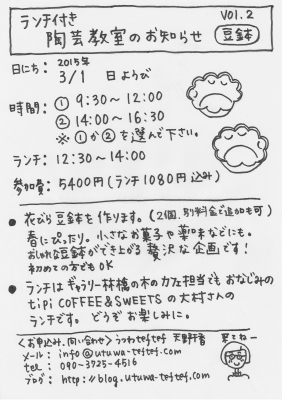 ランチ付き
vol.2
陶芸教室のお知らせ 豆鉢
日にち: 2015年
3/1 日ようび
時間: ① 9:30〜12:00
② 14:00〜16:30
※①か②を選んで下さい。
ランチ: 12:30〜14:00
参加費: 5400円(ランチ1080円込み)
● 花びら豆鉢を作ります。(2個。別料金で追加も可)
春にぴったり。小さなお菓子や薬味などにも。
おしゃれな豆鉢ができ上がる贅沢な企画です!
初めての方でもOK
● ランチはギャラリー林檎の木のカフェ担当でもおなじみの
tipi COFFEE&SWEETSの大村さんの
ランチです。どうぞお楽しみに。
<お申込み、問い合わせ> うつわteftef 天野千香
メール: info@utuwa-teftef.com
tel: 090-3725-4516
ブログ: http://blog.utuwa-teftef.com